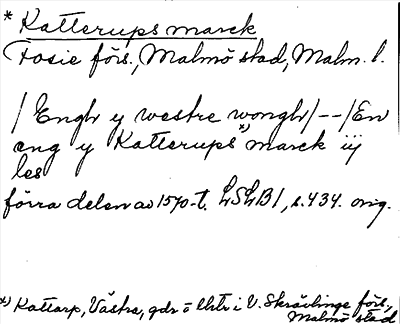 * Katterups marck
Fosie förs., Malmö stad, Malm. l.
/ Engh y westre wongh/--/En
eng y Katterups *) marck iij
les
förra delen av 1570-t. LSLB1, s. 434. orig.
*) Kattarp, Västra, gdr o Uhtr i V. Skrävlinge förs.,
Malmö stad